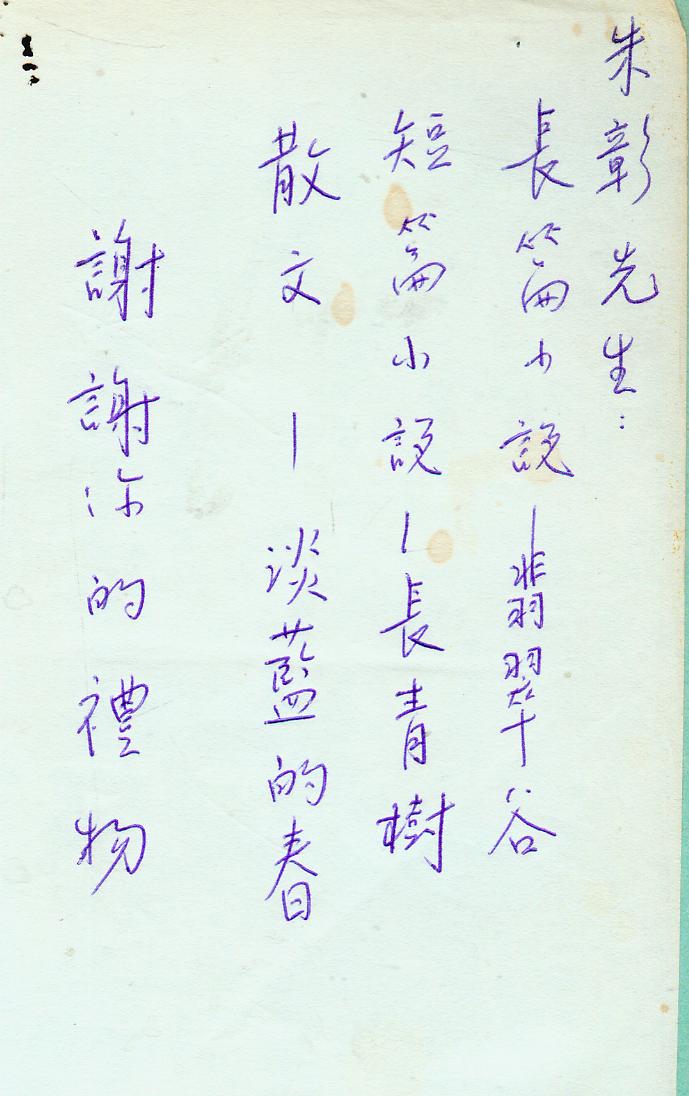 朱彰先生：
長篇小說—翡翠谷
短篇小說—長青樹
散文—淡藍的春
謝謝你的禮物